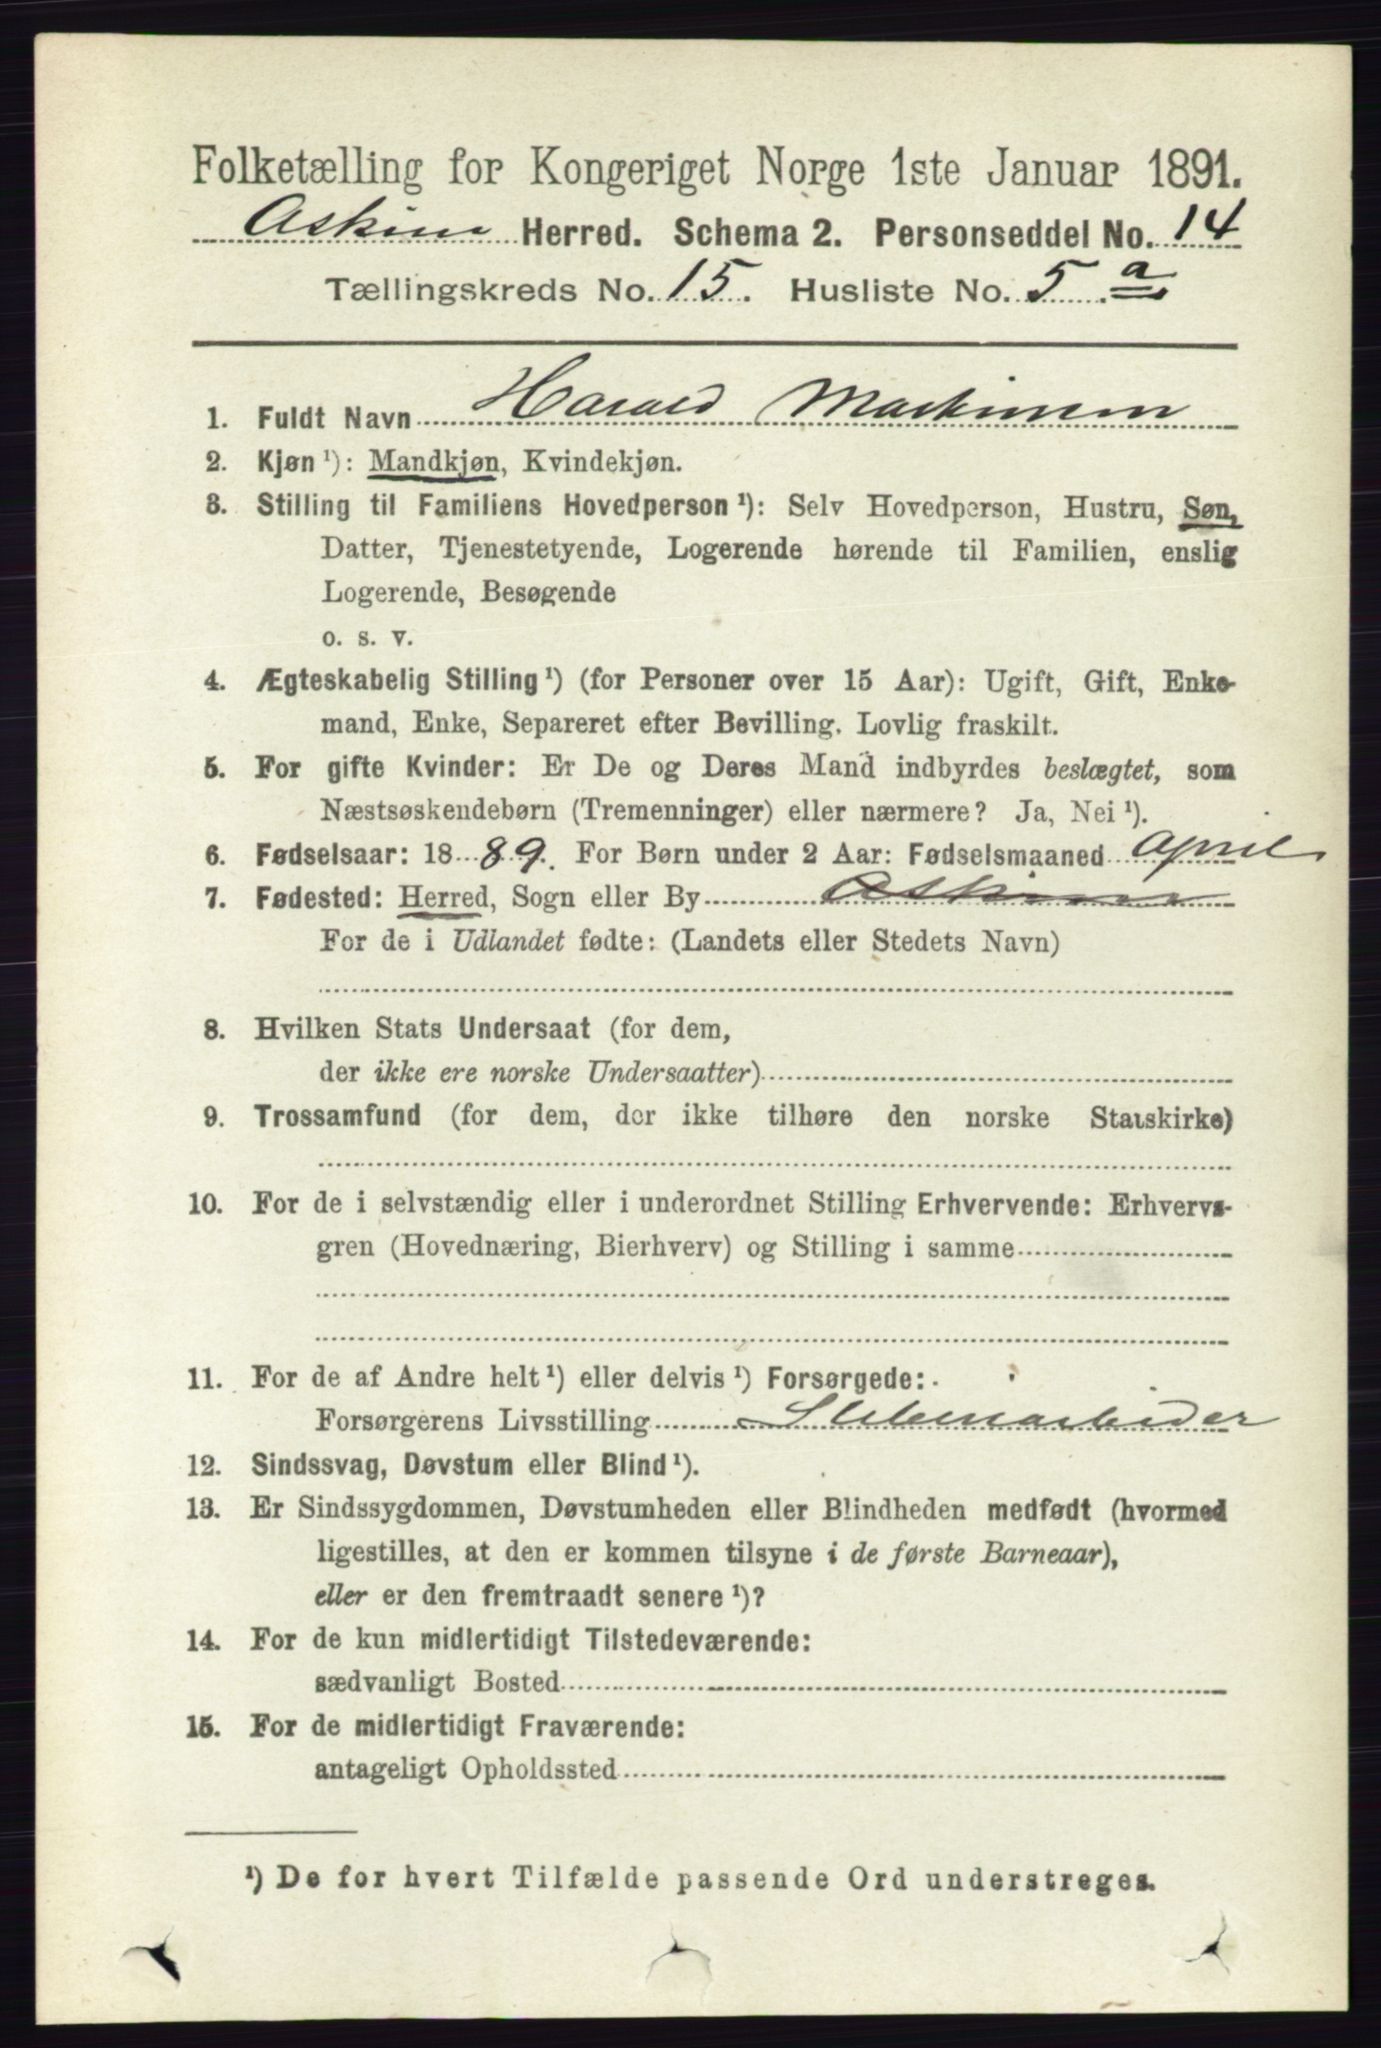 Folketælling for Kongeriget Norge 1ste Januar 1891.
Askim Herred. Schema 2. Personseddel No. 14
Tællingskreds No. 15. Husliste No. 5 a
1. Fuldt Navn Harald Martinsen
2. Kjøn ¹): Mandkjøn, Kvindekjøn.
3. Stilling til Familiens Hovedperson ¹): Selv Hovedperson, Hustru, Søn,
Datter, Tjenestetyende, Logerende hørende til Familien, enslig
Logerende, Besøgende
o. s. v.
4. Ægteskabelig Stilling ¹) (for Personer over 15 Aar): Ugift, Gift, Enke-
mand, Enke, Separeret efter Bevilling. Lovlig fraskilt.
5. For gifte Kvinder: Er De og Deres Mand indbyrdes beslægtet, som
Næstsøskendebørn (Tremenninger) eller nærmere? Ja, Nei ¹).
6. Fødselsaar: 1889. For Børn under 2 Aar: Fødselsmaaned April
7. Fødested: Herred, Sogn eller By Askim
For de i Udlandet fødte: (Landets eller Stedets Navn)
8. Hvilken Stats Undersaat (for dem,
der ikke ere norske Undersaatter)
9. Trossamfund (for dem, der ikke tilhøre den norske Statskirke)
10. For de i selvstændig eller i underordnet Stilling Erhvervende: Erhvervs-
gren (Hovednæring, Bierhverv) og Stilling i samme
11. For de af Andre helt ¹) eller delvis ¹) Forsørgede:
Forsørgerens Livsstilling
12. Sindssvag, Døvstum eller Blind ¹).
13. Er Sindssygdommen, Døvstumheden eller Blindheden medfødt (hvormed
ligestilles, at den er kommen tilsyne i de første Barneaar),
eller er den fremtraadt senere ¹)?
14. For de kun midlertidigt Tilstedeværende:
sædvanligt Bosted
15. For de midlertidigt Fraværende:
antageligt Opholdssted
¹) De for hvert Tilfælde passende Ord understreges.